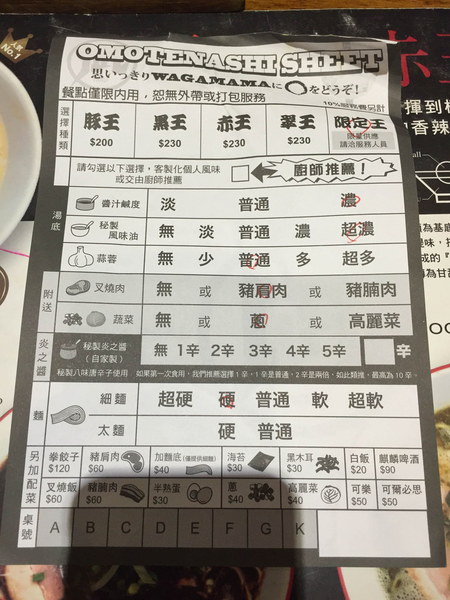 No.1
OMOTENASHI SHEET
思いっきりWAGAMAMAに○をどうぞ!
餐點僅限內用，恕無外帶或打包服務
10%服務費另計
選擇種類
豚王 黑王 赤王 翠王 限定王
$200 $230 $230 $230 限量供應
請洽服務人員
請勾選以下選擇，客製化個人風味
或交由廚師推薦！
廚師推薦！
湯底
醬汁鹹度 淡 普通 濃
秘製風味油 無 淡 普通 濃 超濃
蒜蓉 無 少 普通 多 超多
附送
叉燒肉 無 或 豬肩肉 或 豬腩肉
蔬菜 無 或 蔥 或 高麗菜
炎之醬
秘製炎之醬(自家製) 無 1辛 2辛 3辛 4辛 5辛 辛
秘製八味唐辛子使用 如果第一次食用，我們推薦選擇1辛，1辛是普通，2辛是兩倍，如此類推，最高為10辛。
麵
細麵 超硬 硬 普通 軟 超軟
太麵 硬 普通
另加配菜
拳餃子 $120 豬肩肉 $60 加麵底(僅提供細麵) $40 海苔 $30 黑木耳 $30 白飯 $20 麒麟啤酒 $90
叉燒飯 $60 豬腩肉 $60 半熟蛋 $30 蔥 $40 高麗菜 $40 可樂 $50 可爾必思 $50
桌號 A B C D E F G K